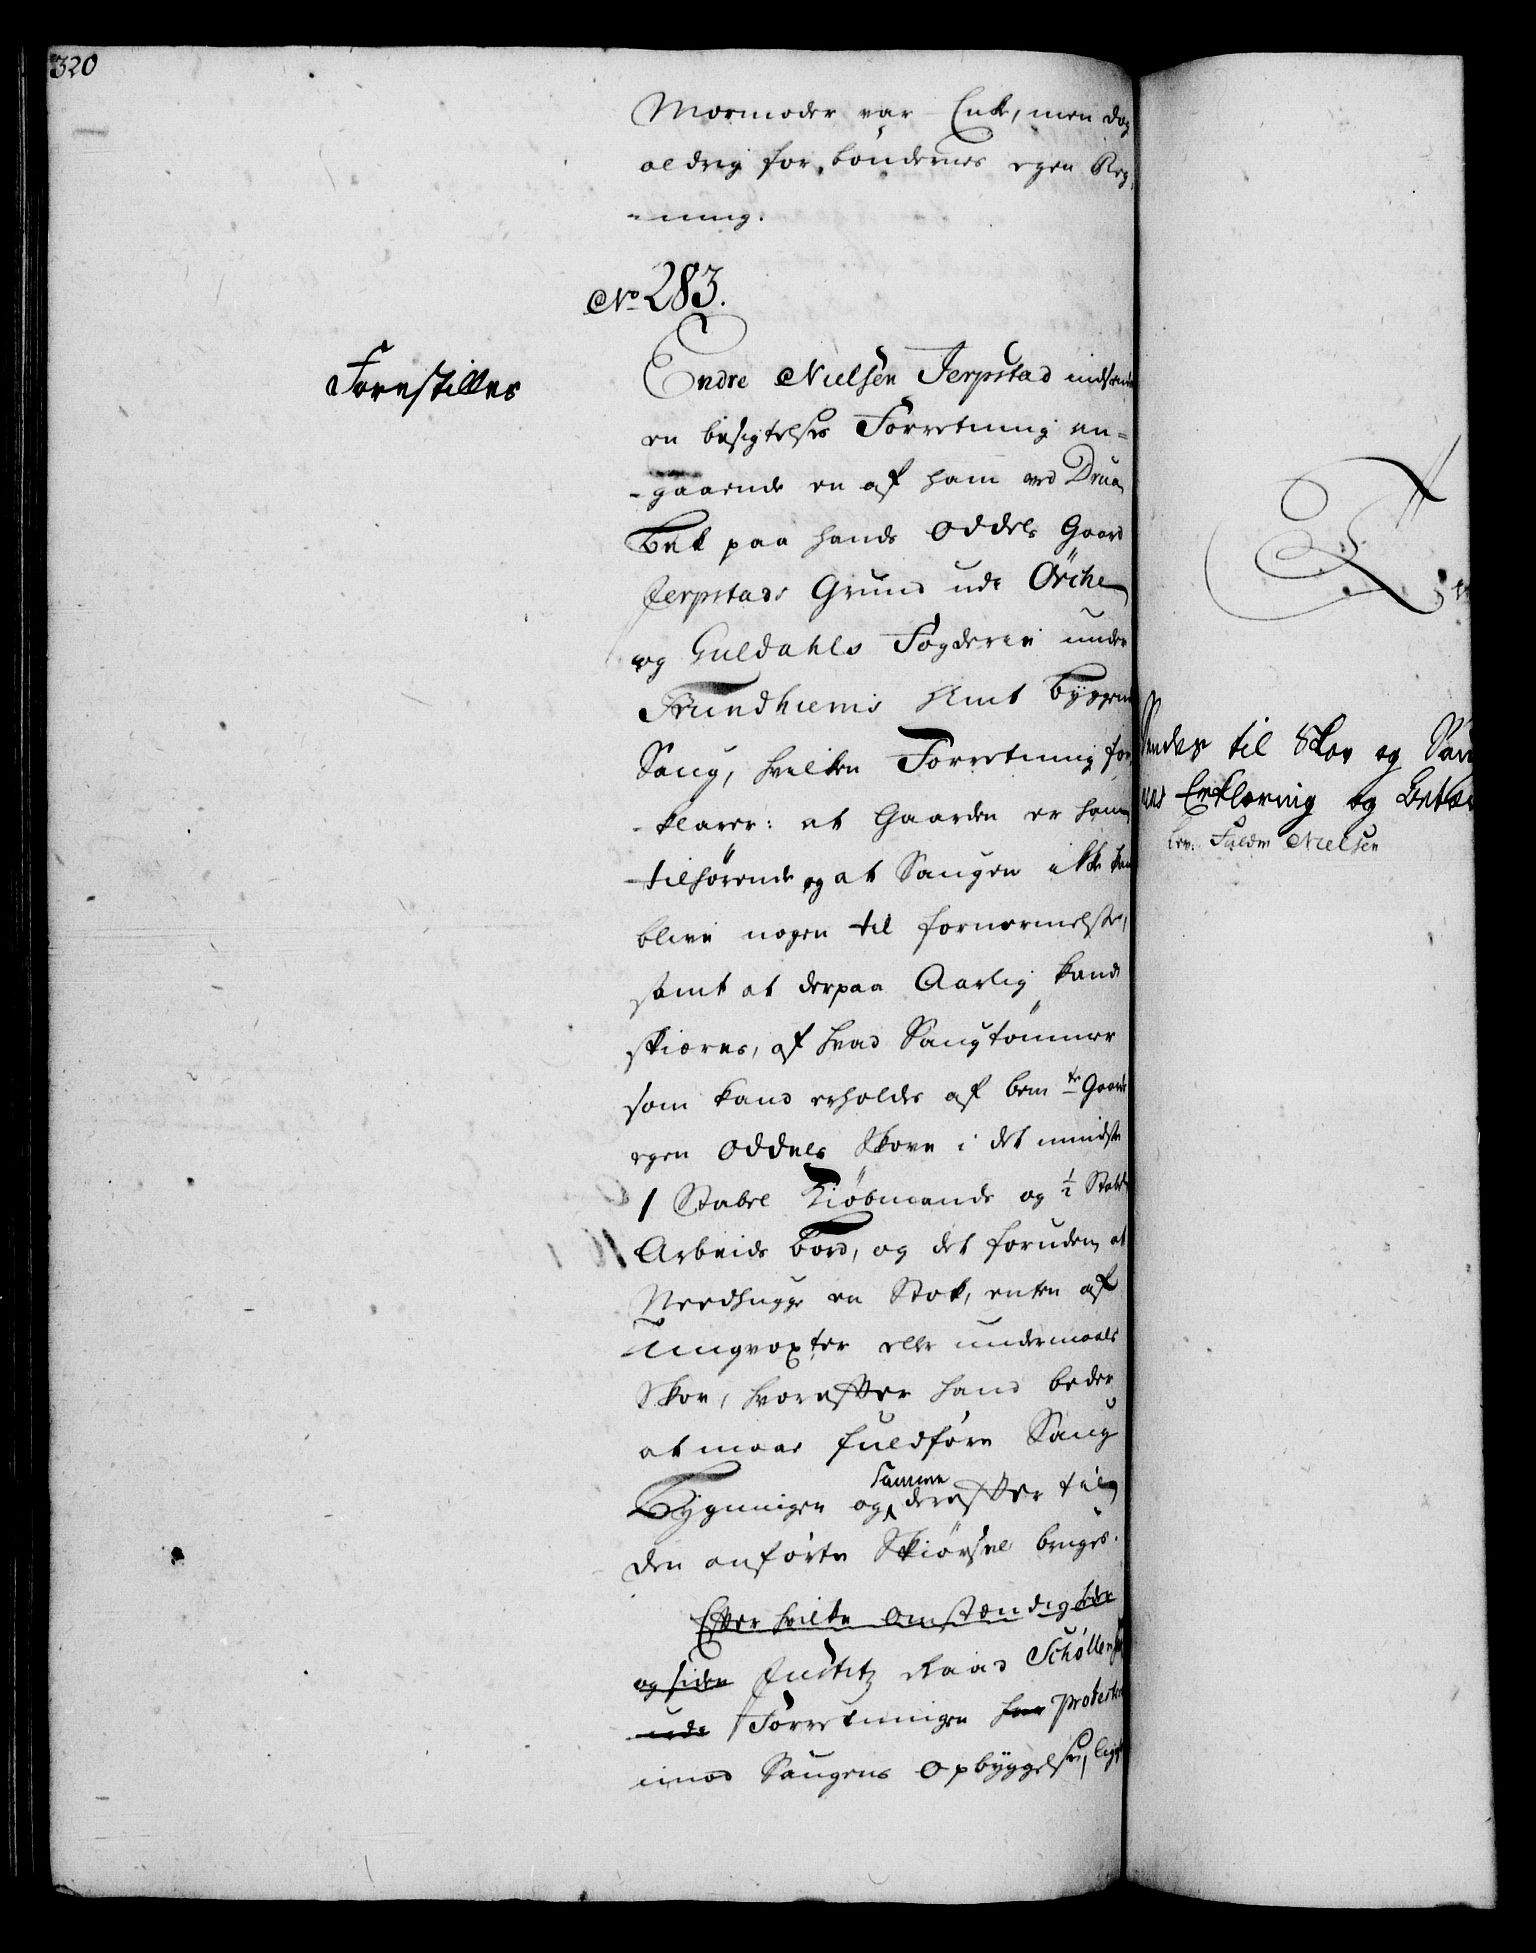 320
Mormoder var Enke, men dog
aldrig for bøndernes egen Reg¬
-ning.
No 283.
Forestilles
Endre Nielsen Jerpstad indsende
en besigtelses Forretning an=
-gaaende en af ham ved Drua
Bek paa hands Oddels Gaard
Jerpstads Grund udi Örche
og Guldahls Fogderie under
Trundhiems Amt bygget
Saug, hvilken Forretning for
-klarer: at Gaarden er ham
tilhørende og at Saugen ikke kand
blive nogen til fornermelse,
samt at derpaa Aarlig kand
skiæres, af hvad Saugtömmer
som kand erholdes af bemte Gaards
egen Oddels Skove i det mindste
1 Stabel Kiöbmands og 1/2 Stabel
Arbeids bord, og det foruden at
Needhugge en Stok, enten af
Ungvoxter eller undermaals
Skov, hvorefter hand beder
at maae fuldføre Saug
Bygningen og samme derefter til
den anførte Skiørsel bruges.
Efter hvilke omstændigheder
og siden Justitz Raad Schøller
udi Forretningen har protesteret
imod Saugens Opbyggelse, lige
Sendes til Skov og Saug
Erklæring og Betæn
lev: Falden Nielsen